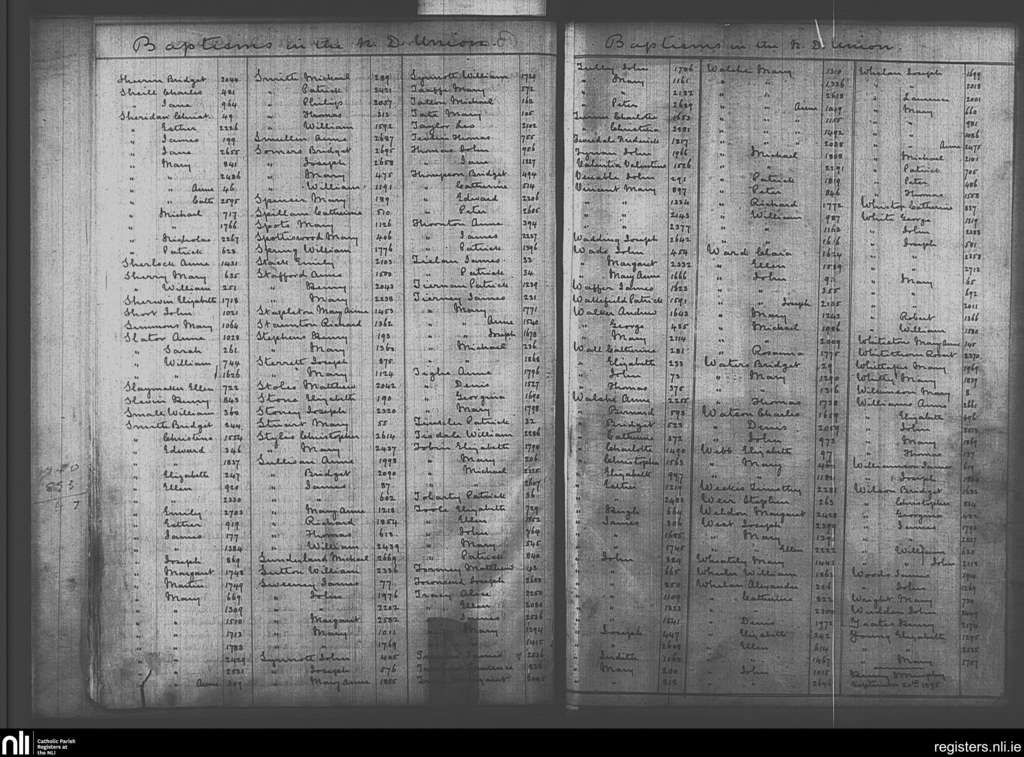 Baptisms in the N. D. Union.
Sheerin Bridget 2044
Sheill Charles 421
" Jane 964
Sheridan Christ. 49
" Esther 2226
" James 199
" Jane 2655
" Mary 841
" " 2486
" " Anne 46
" " Cath 2595
" Michael 717
" " 1766
" Nicholas 2267
" Patrick 623
Sherlock Anne 1431
Sherry Mary 635
" William 251
Sherwin Elizabeth 1718
Short John 1021
Simmons Mary 1064
Slator Anne 1028
" Sarah 261
" William 744
" " 1626
Slaymaker Ellen 722
Slevin Henry 843
Small William 360
Smith Bridget 244
" Christina 1554
" Edward 346
" " 1837
" Elizabeth 247
" Ellen 920
" " 2330
" Emily 2703
" Esther 919
" James 177
" " 1384
" Joseph 869
" Margaret 1743
" Martin 1749
" Mary 669
" " 1309
" " 1510
" " 1713
" " 1783
" " 2429
" " 2521
" " Anne 209
Smith Michael 289
" Patrick 2421
" Philip 2057
" Thomas 313
" William 1592
Smullen Anne 2687
Somers Bridget 2695
" Joseph 2658
" Mary 475
" William 1191
Spencer Mary 189
Spillam Catherine 510
Spots Mary 1126
Spottiswood Mary 406
Spring William 1776
Stack Emily 2103
Stafford Anne 1503
" Henry 2043
" Mary 2238
Stapleton Mary Anne 1453
Staunton Richard 1362
Stephens Henry 193
" Mary 1363
Sterrett Joseph 375
" Mary 1124
Stoles Matthew 2042
Stone Elizabeth 190
Stoney Joseph 2320
Stuart Mary 55
Styles Christopher 2614
" Mary 2437
Sullivan Anne 1993
" Bridget 2090
" James 87
" " 602
" Mary Anne 1218
" Richard 1854
" Thomas 613
" William 2439
Sunderland Michael 2669
Sutton William 2336
Sweeney James 77
" John 1976
" " 2202
" Margaret 2582
" Mary 1011
" " 1769
Synnott John 405
" Joseph 576
" Mary Anne 1885
Synnott William 1720
Taaffe Mary 572
Tallon Michael 162
Tate Mary 105
Taylor Leo 2102
Terrin Thomas 755
Thomas John 906
" Jane 1827
Thompson Bridget 494
" Catherine 514
" Edward 2306
" Peter 2605
Thornton Anne 394
" James 2227
" Patrick 1396
Tielan James 33
" Patrick 34
Tiernan Patrick 1239
Tierney James 231
" Mary 1771
" " Anne 1540
" " Joseph 1670
" Michael 236
" " 1868
Tighe Anne 1796
" Denis 1527
" Georgina 1690
" Mary 1798
Tinsler Patrick 32
Tisdale William 2286
Tobin Elizabeth 1790
" Mary 206
" Michael 2325
" " 2607
Toharty Patrick 36
Toole Elizabeth 729
" Ellen 1852
" John 764
" Mary 545
" Patrick 840
Toomey Matthew 42
Townsend Joseph 2603
Tracy Alice 2250
" Ellen 2031
" James 2526
" Mary 1294
" " 1415
Baptisms in the N. D. Union.
Tully John 1706
" Mary 1161
" " 2132
" Peter 2629
" Christina 2581
Tynan John 1966
Valentia Valentine 1526
Venable John 291
Vincent Mary 897
" " 1334
" " 2143
" " 2377
Wadding Joseph 2642
Wade John 454
" Margaret 2332
" Mary Anne 1666
Waffer James 1623
Wakefield Patrick 1591
Walker Andrew 1643
" George 435
" Mary 2114
Wall Catherine 281
" Elizabeth 233
" John 73
" Thomas 375
Walshe Anne 2255
" Bernard 593
" Bridget 523
" Catherine 372
" Charlotte 1490
" Christopher 1563
" Elizabeth 197
" Esther 214
" " 2423
" Hugh 664
" James 306
" " 535
" " 1745
" John 389
" " 665
" " 250
" " 1109
" " 1223
" " 1541
" Joseph 447
" " 2609
" Judith 1162
" Mary 200
" " 212
Walshe Mary 1310
" " 1326
" " 2618
" " Anne 1049
" " 1115
" " 1492
" " 2028
" Michael 1808
" " 2291
" Patrick 1819
" Peter 846
" Richard 1772
" William 987
" " 1163
" " 1616
Ward Maria 1624
" Ellen 1519
" John 91
" " 255
" " Joseph 2105
" Mary 1242
" Michael 1096
" " 2009
" Rosanna 1775
Waters Bridget 29
" Mary 1290
" " 1316
" Thomas 1720
Watson Charles 1619
" Denis 2059
" John 973
Webb Elizabeth 97
" Mary 402
" " 1121
Weekes Timothy 2281
Weir Stephen 263
Weldon Margaret 2428
West Joseph 2389
" Mary 129
" " Ellen 2222
Wheatley Mary 1442
Wheeler William 1263
Whelan Alexander 206
" Catherine 222
" " 2300
" Denis 1972
" Elizabeth 242
" Ellen 614
" " 1467
" John 1015
" " 2694
Whelan Joseph 1699
" " 2018
" Laurence 2001
" Mary 660
" " 981
" " 1086
" " Anne 2475
" Michael 2101
" Patrick 705
" Peter 406
" Thomas 1553
Whiston Catherine 337
White George 1319
" John 2383
" Joseph 501
" " 2358
" " 2712
" Mary 65
" " 692
" " 2011
" Robert 1366
" William 1530
Whitestone Mary Anne 145
Whitethorn Robert 2370
Whittaker Mary 1969
Whitty Mary 1839
Wilkinson Mary 8
Williams Anne 2661
" Elizabeth 296
" John 2059
" Mary 1369
" Thomas 137
Williamson James 619
" Joseph 1220
Wilson Bridget 1622
" Christopher 834
" Georgina 422
" James 1793
" William 630
" " John 2112
Woods James 1904
" John 1269
Wright Mary 730
Yeates Henry 2174
Young Elizabeth 1295
" " 2525
" Mary 1757
Henry Murphy
September 20th 1895
nli
Catholic Parish
Registers at
the NLI
registers.nli.ie